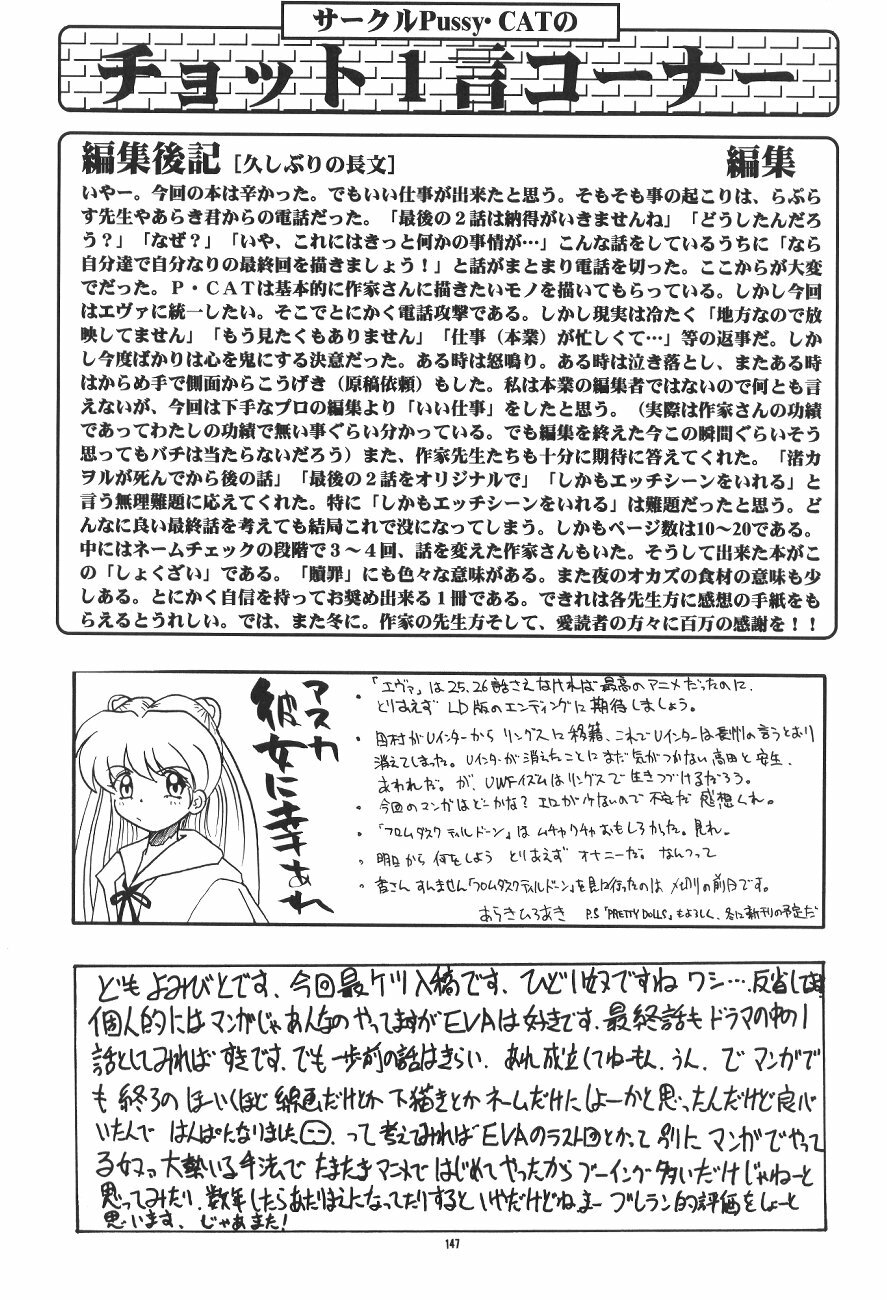 サークルPussy・CATの
チョット1言コーナー
編集後記［久しぶりの長文］ 編集
いやー。今回の本は辛かった。でもいい仕事が出来たと思う。そもそも事の起こりは、らぷら
す先生やあらき君からの電話だった。「最後の２話は納得がいきませんね」「どうしたんだろ
う？」「なぜ？」「いや、これにはきっと何かの事情が…」こんな話をしているうちに「なら
自分達で自分なりの最終回を描きましょう！」と話がまとまり電話を切った。ここからが大変
でだった。Ｐ・ＣＡＴは基本的に作家さんに描きたいモノを描いてもらっている。しかし今回
はエヴァに統一したい。そこでとにかく電話攻撃である。しかし現実は冷たく「地方なので放
映してません」「もう見たくもありません」「仕事（本業）が忙しくて…」等の返事だ。しか
し今度ばかりは心を鬼にする決意だった。ある時は怒鳴り。ある時は泣き落とし、またある時
はからめ手で側面からこうげき（原稿依頼）もした。私は本業の編集者ではないので何とも言
えないが、今回は下手なプロの編集より「いい仕事」をしたと思う。（実際は作家さんの功績
であってわたしの功績で無い事ぐらい分かっている。でも編集を終えた今この瞬間ぐらいそう
思ってもバチは当たらないだろう）また、作家先生たちも十分に期待に答えてくれた。「渚カ
ヲルが死んでから後の話」「最後の２話をオリジナルで」「しかもエッチシーンをいれる」と
言う無理難題に応えてくれた。特に「しかもエッチシーンをいれる」は難題だったと思う。ど
んなに良い最終話を考えても結局これで没になってしまう。しかもページ数は10～20である。
中にはネームチェックの段階で３～４回、話を変えた作家さんもいた。そうして出来た本がこ
の「しょくざい」である。「贖罪」にも色々な意味がある。また夜のオカズの食材の意味も少
しある。とにかく自信を持ってお奨め出来る１冊である。できれは各先生方に感想の手紙をも
らえるとうれしい。では、また冬に。作家の先生方そして、愛読者の方々に百万の感謝を！！
アスカ
彼女に幸あれ
・「エヴァ」は25、26話さえなければ最高のアニメだったのに、
とりあえず LD版のエンディングに期待しましょう。
・田村がUインターから リングスに移籍、これでUインターは長州の言うとおり
消えてしまった。Uインターが消えたことにまだ気がつかない高田と安生、
あわれだ。が、UWFイズムはリングスで生きつづけるだろう。
・今回のマンガはどーかな？エロが少ないので不安だ 感想くれ。
・「フロムダスクティルドーン」は ムチャクチャおもしろかった。見れ。
・明日から 何をしよう とりあえず オナニーだ。なんつって
・皆さんすんません「フロムダスクティルドーン」を見に行ったのは 〆切りの前日です。
あらきひろあき P.S「PRETTY DOLLS」もよろしく、冬に新刊の予定だ
ども よみびとです、今回最ケツ入稿です、ひどい奴ですね ワシ…、反省してます
個人的にはマンガじゃあんなのやってますがEVAは好きです、最終話もドラマの中の1
話としてみればすきです、でも一歩前の話はきらい、あれ成立してねーもん、うん、で マンガで
も 終ろの ほーいくほど 線画だけとか 下描きとか ネームだけにしよーかと思ったんだけど良心
いたんで はんぱになりました、って 考えてみればEVAのラスト回とかって 別に マンガでやって
る奴ァ大勢いる手法で たまたまアニメではじめてやったから ブーイング多いだけじゃねーと
思ってみたり、数年したらあたりまえになってたりすると いやだけどねまー ブレラン的評価をしよーと
思います、じゃあまた!
147